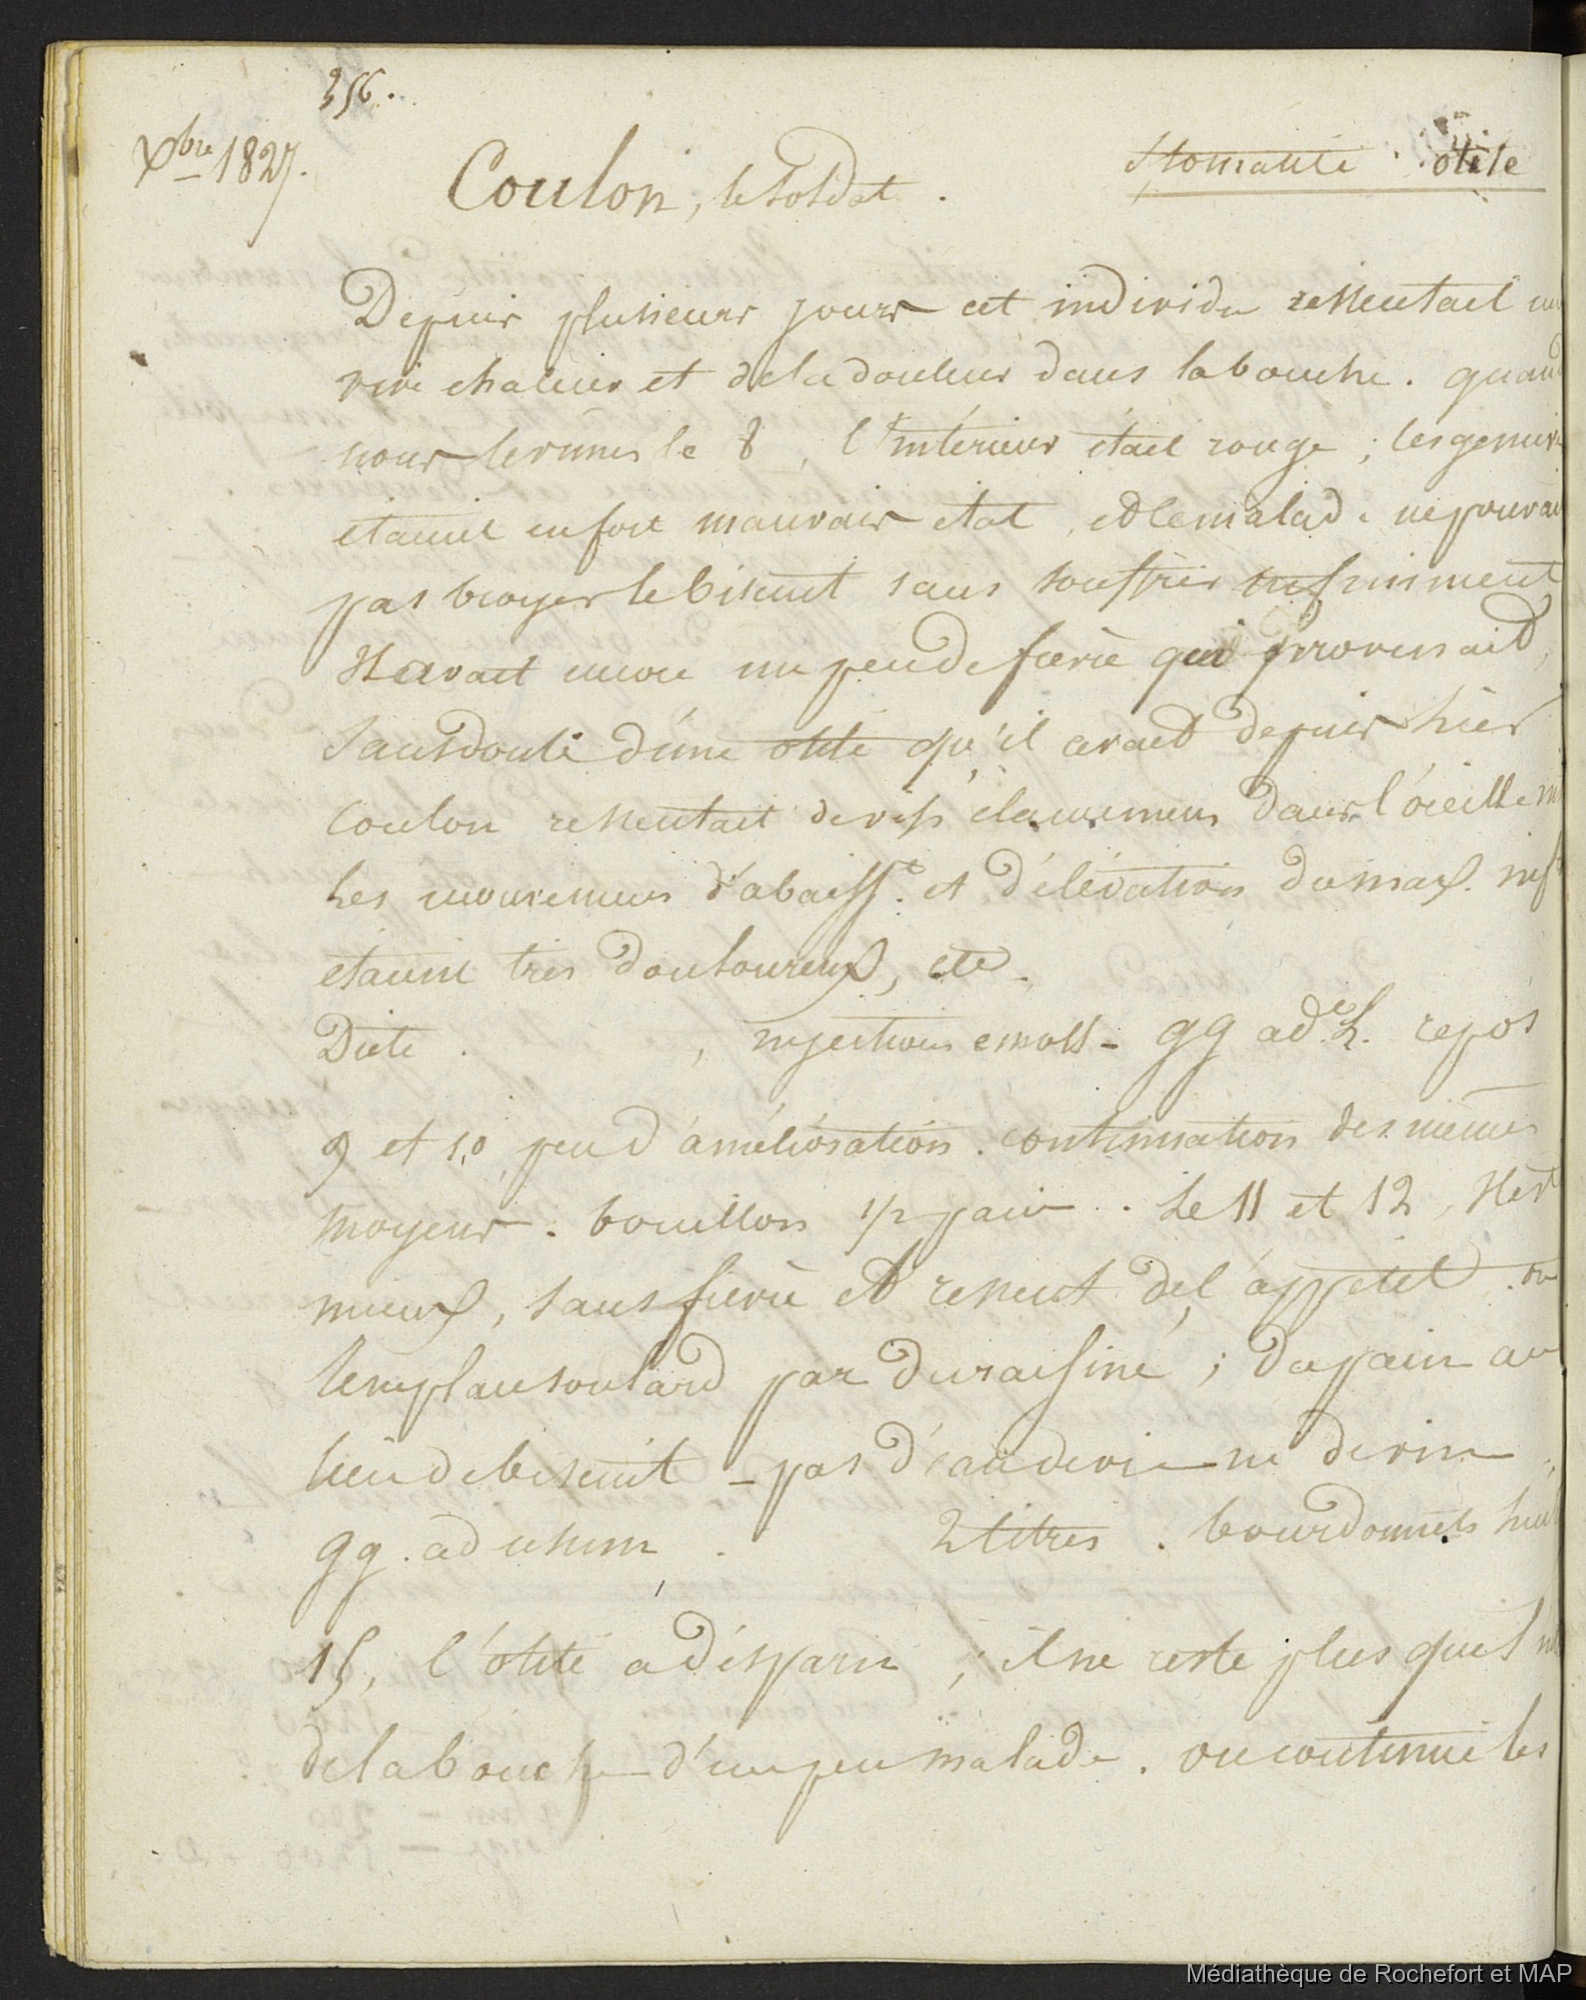 356.
Xbre 1827.
Coulon, le soldat. Stomatite. otite
Depuis plusieurs jours cet individu ressentait une
vive chaleur et de la douleur dans la bouche. quand
nous le vimes le 8, l'intérieur était rouge; les gencives
étaient en fort mauvais état, et le malade ne pouvait
pas broyer le biscuit sans souffrir infiniment
Il avait encore un peu de fièvre qui provenait,
sans doute d'une otite qu'il avait depuis hier
Coulon ressentait de vifs élancemens dans l'oreille
Les mouvemens d'abaisst. et d'élévation du max. inf
étaient très douloureux, etc.
Diète. , injections emoll - gg ad. h. repos
9 et 10 peu d'amélioration. continuation des mêmes
moyens. bouillon 1/2 pain. Le 11 et 12, Il est
mieux, sans fièvre et ressent de l'appétit. on
remplace son lard par du raisiné; du pain au
lieu de biscuit - pas d'eau de vie ni de vin
gg. ad usum. 2 litres. bourdonnets huil
15, l'otite a disparu; il ne reste plus que l
de la bouche d'un peu malade. on continue les
Médiathèque de Rochefort et MAP